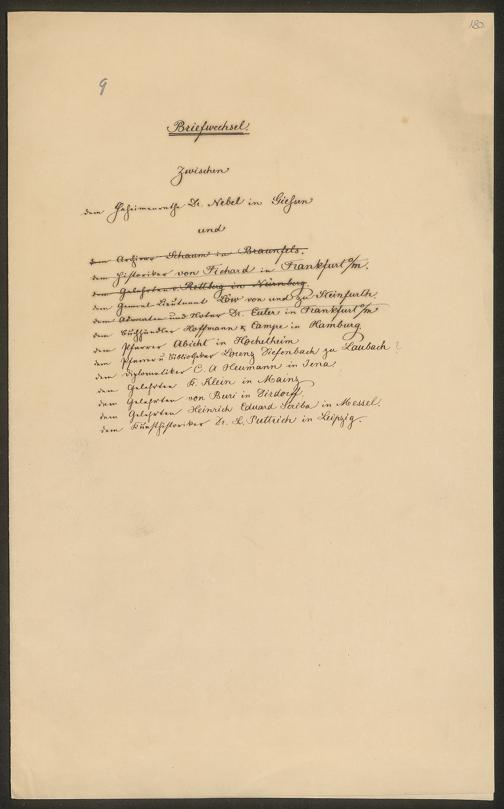 180.
9
Briefwechsel.
zwischen
dem Geheimenrathe Dr. Nebel in Gießen
und
dem Archivar Schaum in Braunfels.
dem Historiker von Fichard in Frankfurt a/M.
dem Gelehrten v. in Nürnberg.
dem General Lieutnant Löw von und zu Steinfurth.
dem Advokaten und Notar Dr. Euler in Frankfurt a/M
dem Buchhändler Hoffmann & Campe in Hamburg
dem Pfarrer Abicht in Hochelheim
dem Pfarrer u Bibliothekar Lorenz Diefenbach zu Laubach ?
dem Diplomatiker C. A Heumann in Jena.
dem Gelehrten K. Klein in Mainz
dem Gelehrten von Buri in Dirdorff.
dem Gelehrten Heinrich Eduard Scriba in Messel.
dem Kunsthistoriker Dr. L. Puttrich in Leipzig.